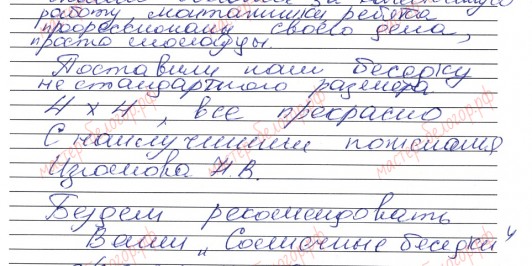 работу монтажники ребята
профессионалы своего дела,
просто молодцы.
Поставили нам беседку
не стандартного размера
4 х 4, все прекрасно
С наилучшими пожелания
Н.В.
Будем рекомендовать
Ваши „Солнечные беседки"